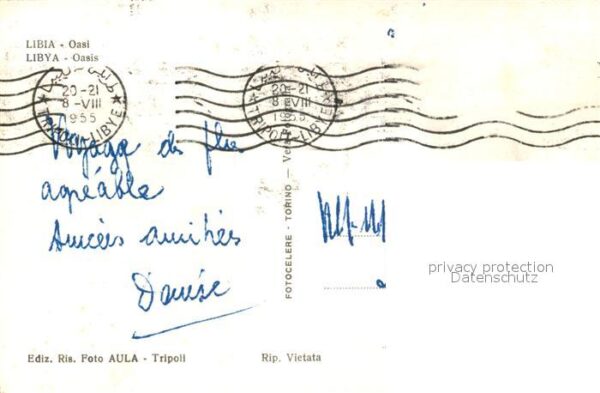 LIBIA - Oasi
LIBYA - Oasis
طرابلس ليبيا
20-21
8-VIII
1955
TRIPOLI-LIBYE
طرابلس ليبيا
20-21
8-VIII
1955
TRIPOLI-LIBYE
Voyage des plus
agréable
Sincères amitiés
Denise
FOTOCELERE - TORINO - Vera
privacy protection
Datenschutz
Ediz. Ris. Foto AULA - Tripoli
Rip. Vietata